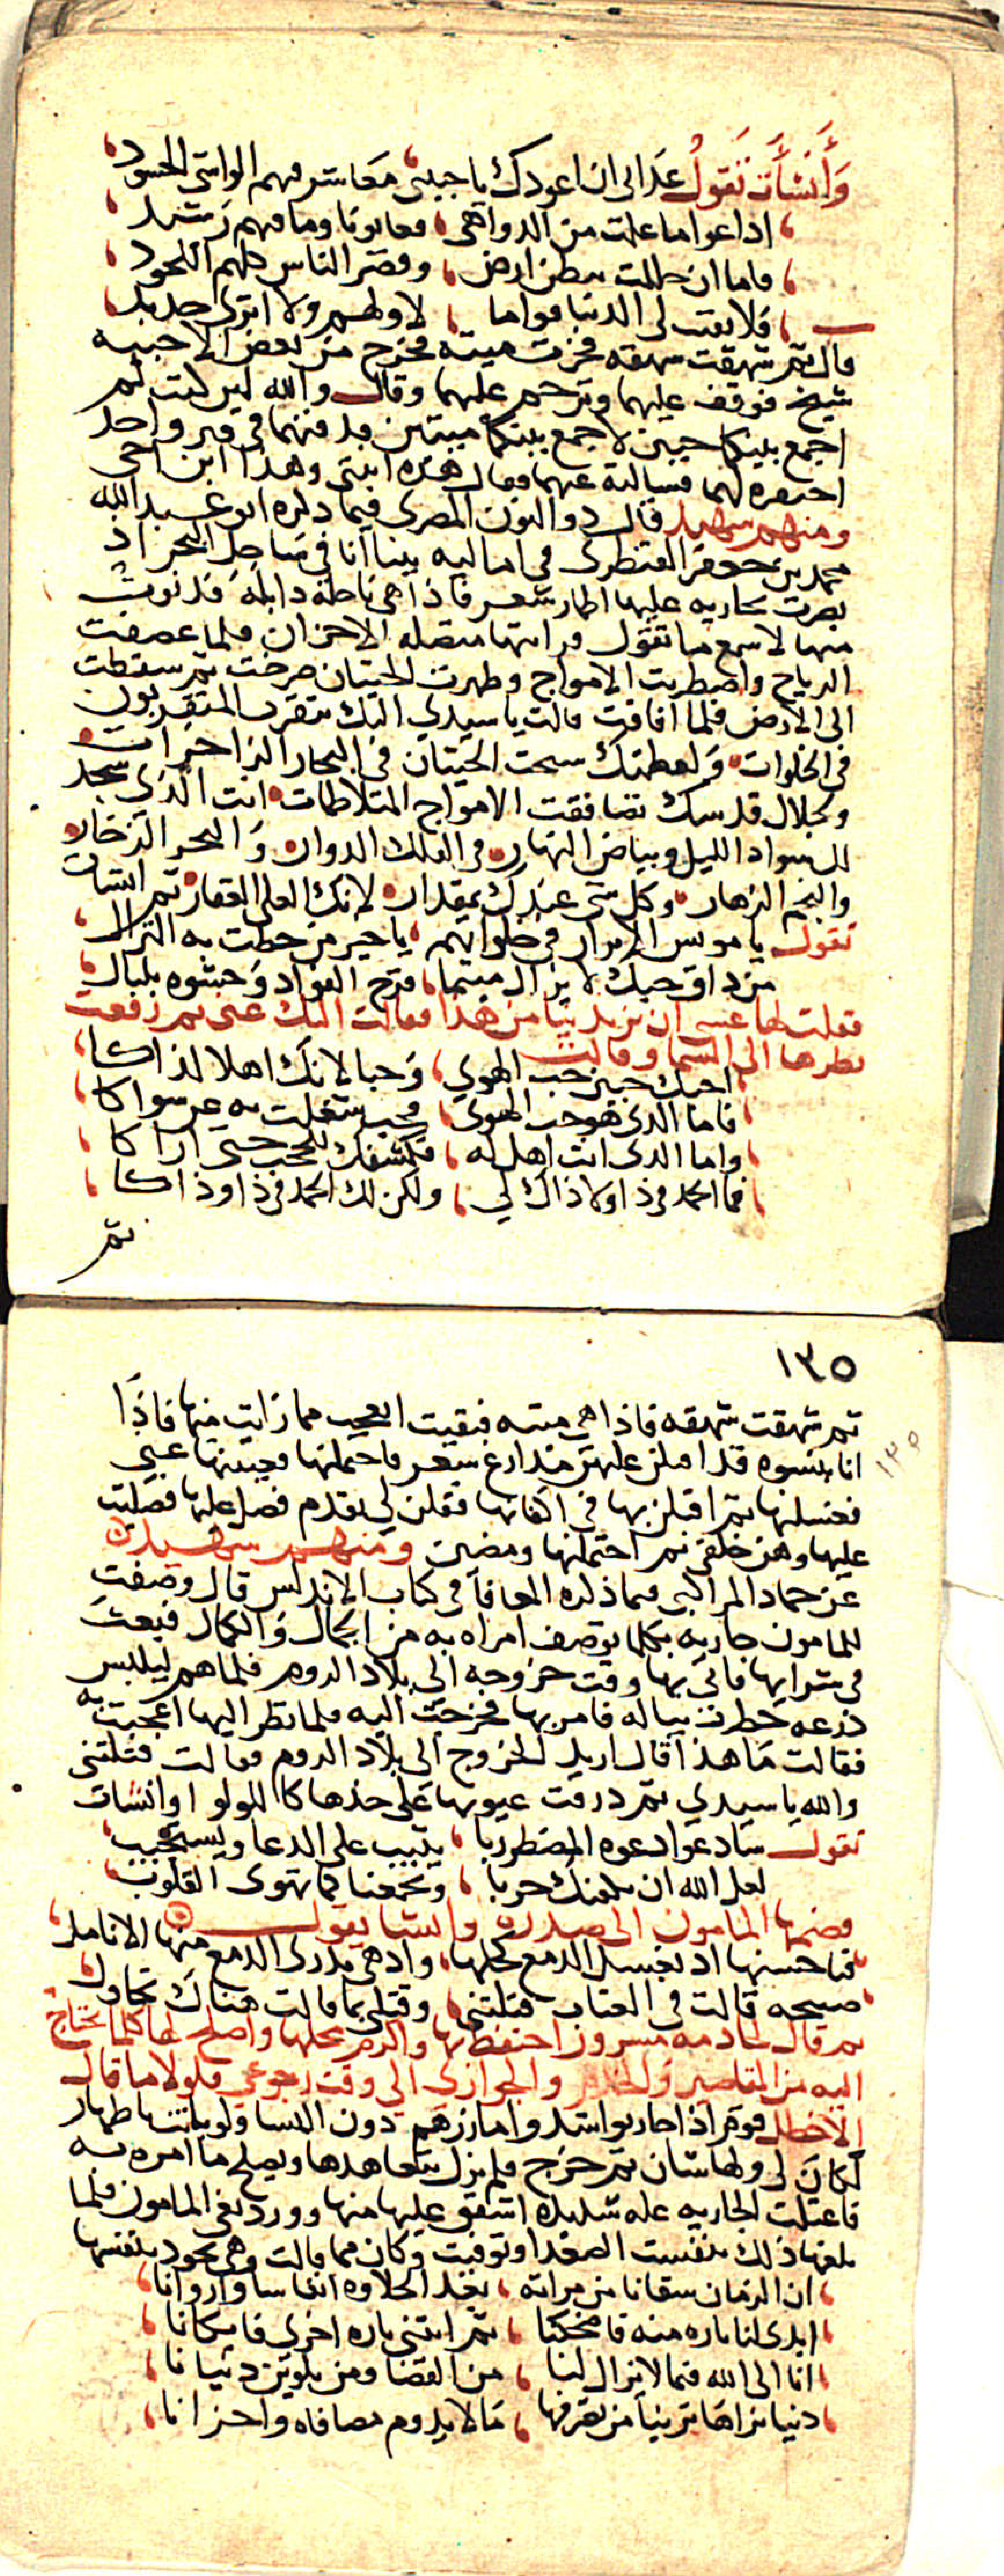 وأنشأت تقول عداني ان اعودك يا حبيبي معاشر فيهم الواشي الحسود
اذاعوا ما علمت من الدواهي وعابونا وما فيهم رشيد
فاما ان حللت ببطن ارض وقصر الناس كلهم اللحود
فلا بقيت لي الدنيا فواقا ولا لهم ولا اثرى عديد
قال ثم شهقت شهقة فخرت ميتة فخرج من بعض الاخبية
شيخ فوقف عليهما وترحم عليهما وقال والله لين كنت لم
اجمع بينكما حيين لاجمع بينكما ميتين فدفنهما في قبر واحد
احتفره لهما فسالته عنهما فقال هذه ابنتي وهذا ابن اخي
ومنهم شهيد قال ذو النون المصري فيما ذكره ابو عبد الله
محمد بن جعفر القنطري في اماليه بينا انا في ساحل البحر اذ
بصرت بجارية عليها اطمار شعر فاذا هي ناحلة ذابلة فدنوت
منها لاسمع ما تقول فرايتها متصلة الاحزان فلما عصفت
الرياح واضطربت الامواج وظهرت الحيتان صرخت ثم سقطت
الى الارض فلما افاقت قالت يا سيدي اليك يتقرب المتقربون
في الخلوات ولعظمتك سبحت الحيتان في البحار الزاخرات
وبجلال قدسك تصافقت الامواج المتلاطمات انت الذي سجد
لك سواد الليل وبياض النهار والفلك الدوار والبحر الزخار
والنجم الزهار وكل شي عندك بمقدار لانك العلي القهار ثم انشات
تقول يا مونس الابرار في خلواتهم يا خير من حطت به النزال
من ذاق حبك لا يزال متيما قرح الفواد وحشوه بلبال
فقلت لها عسى ان تزيديني من هذا فقالت اليك عني ثم رفعت
طرفها الى السما وقالت
احبك حبين حب الهوى وحبا لانك اهل لذاكا
فاما الذي هو حب الهوى فحب شغلت به عن سواكا
واما الذي انت اهل له فكشفك للحجب حتى اراكا
فما الحمد في ذا ولا ذاك لي ولكن لك الحمد في ذا وذاكا
ثم
١٣٥
١٣٥
ثم شهقت شهقة فاذا هي ميتة فبقيت اتعجب مما رايت منها فاذا
انا بنسوة قد اقبلن عليهن مدارع شعر فاحتملنها فغيبنها عني
فغسلنها ثم اقبلن بها في اكفانها فقلن لي تقدم فصل عليها فصليت
عليها وهن خلفي ثم احتملنها ومضين ومنهم شهيدان
عن حماد المراكبي فيما ذكره المعافا في كتاب الانيس قال وصفت
للمامون جارية بكلما توصف امراة به من الجمال والكمال فبعث
في شرايها فاتي بها وقت خروجه الى بلاد الروم فلما هم ليلبس
درعه خطرت بباله فامر بها فخرجت اليه فلما نظر اليها اعجبت به
فقالت ما هذا قال اريد الخروج الى بلاد الروم فقالت قتلتني
والله يا سيدي ثم ذرفت عيونها على خدها كاللولو وانشات
تقول سادعو دعوة المضطر ربا يثيب على الدعا ويستجيب
لعل الله ان يكفيك حربا ويجمعنا كما تهوى القلوب
فضمها المامون الى صدره وانشا يقول
فيا حسنها اذ يغسل الدمع كحلها واذ هي تذري الدمع منها الانامل
صبيحة قالت في العتاب قتلتني وقتلي بما قالت هناك تحاول
ثم قال لخادمه مسرور احتفظ بها واكرم محلها واصلح لها كلما تحتاج
اليه من المقاصير والخدم والجواري الى وقت رجوعي فلولا ما قال
الاخطل قوم اذا حاربوا شدوا مازرهم دون النسا ولو باتت باطهار
لكان لي ولها شان ثم خرج فلم يزل يتعاهدها ويصلح ما امره به
فاعتلت الجارية علة شديدة اشفق عليها منها وورد نعي المامون فلما
بلغها ذلك تنفست الصعدا وتوفيت وكان مما قالت وهي تجود بنفسها
ان الزمان سقانا من مرارته بعد الحلاوة انفاسا واروانا
ابدى لنا تارة منه فاضحكنا ثم انثنى تارة اخرى فابكانا
انا الى الله فيما لا يزال لنا من القضا ومن تلوين دنيانا
دنيا نراها ترينا من تصرفها ما لا يدوم مصافاة واحزانا